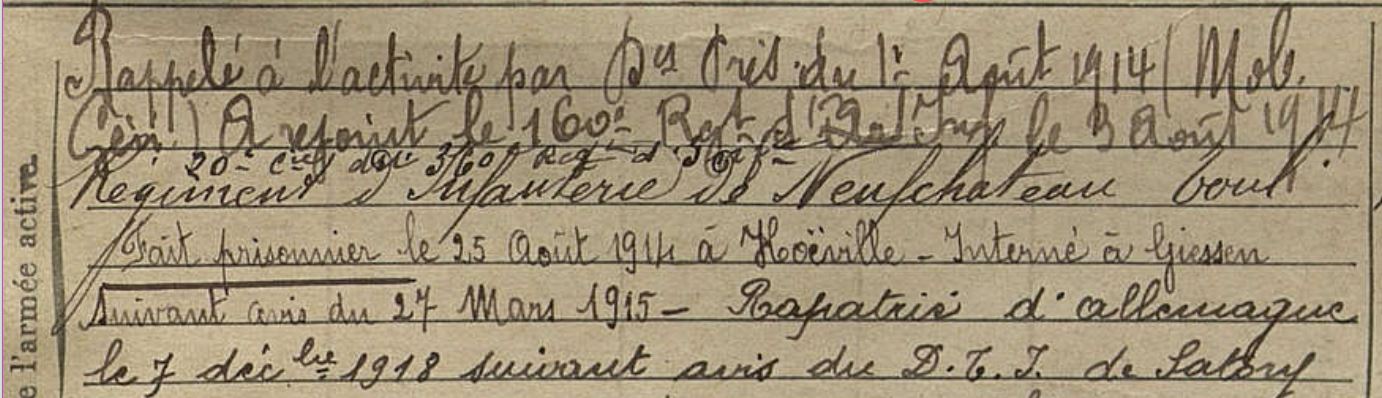 Rappelé à l'activité par Det Prés. du 1er Août 1914 (Mob.
Gén.) A rejoint le 160e Rgt d' le 3 Août 1914
20e 360e Rgt d'Infie
Régiment d'Infanterie de Neufchateau Toul
Fait prisonnier le 25 Août 1914 à Hoëville - Interné à Giessen
suivant avis du 27 Mars 1915 - Rapatrié d'allemagne
le 7 décbre 1918 suivant avis du D.T.I. de Satory
e l'armée active.